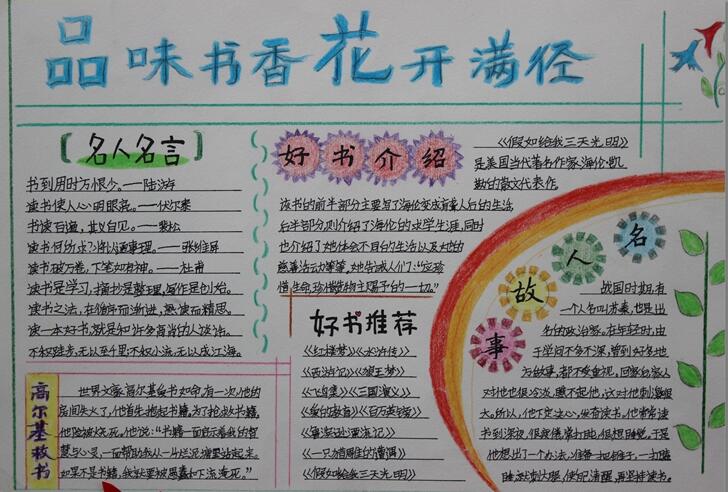 品味书香花开满径
名人名言
书到用时方恨少。——陆游
读书使人心明眼亮。——伏尔泰
书读百遍，其义自见。——裴松
读书何所求？将以通事理。——张维屏
读书破万卷，下笔如有神。——杜甫
读书是学习，摘抄是整理，写作是创造。
读书之法，在循序而渐进，熟读而精思。
读一本好书，就是和许多高尚的人谈话。
不积跬步，无以至千里不积小流，无以成江海。
高尔基救书
世界文豪高尔基爱书如命，有一次，他的
房间失火了，他首先抱起书籍，为了抢救书籍，
他险被烧死。他说：“书籍一面启示着我的智
慧与心灵，一面帮助我从一片烂泥塘里站起来，
如果不是书籍，我就要被愚蠢和下流淹死。”
好书介绍
《假如给我三天光明》
是美国当代著名作家海伦·凯
勒的散文代表作。
该书的前半部分主要写了海伦变成盲聋人后的生活，
后半部分则介绍了海伦的求学生涯。同时
也介绍了她体会不同的生活以及她的
慈善活动等等，她告诫人们：“应珍
惜生命，珍惜造物主赐予的一切。”
好书推荐
《红楼梦》《水浒传》
《西游记》《狼王梦》
《三国演义》
《爱的教育》
《鲁滨逊漂流记》
《一只猎雕的遭遇》
《假如给我三天光明》
名人故事
战国时期，有
一个人名叫苏秦，也是出
名的政治家。在年轻时，由
于学问不多不深，曾到好多地
方做事，都不受重视。回家后家人
对他也很冷淡，瞧不起他，这对他刺激很
大。所以，他下定决心，发奋读书。他常常读
书到深夜，很疲倦，常打盹，很想睡觉。于是
他想出了一个办法，准备一把锥子，一打瞌
睡，就刺大腿，使自己清醒，再坚持读书。